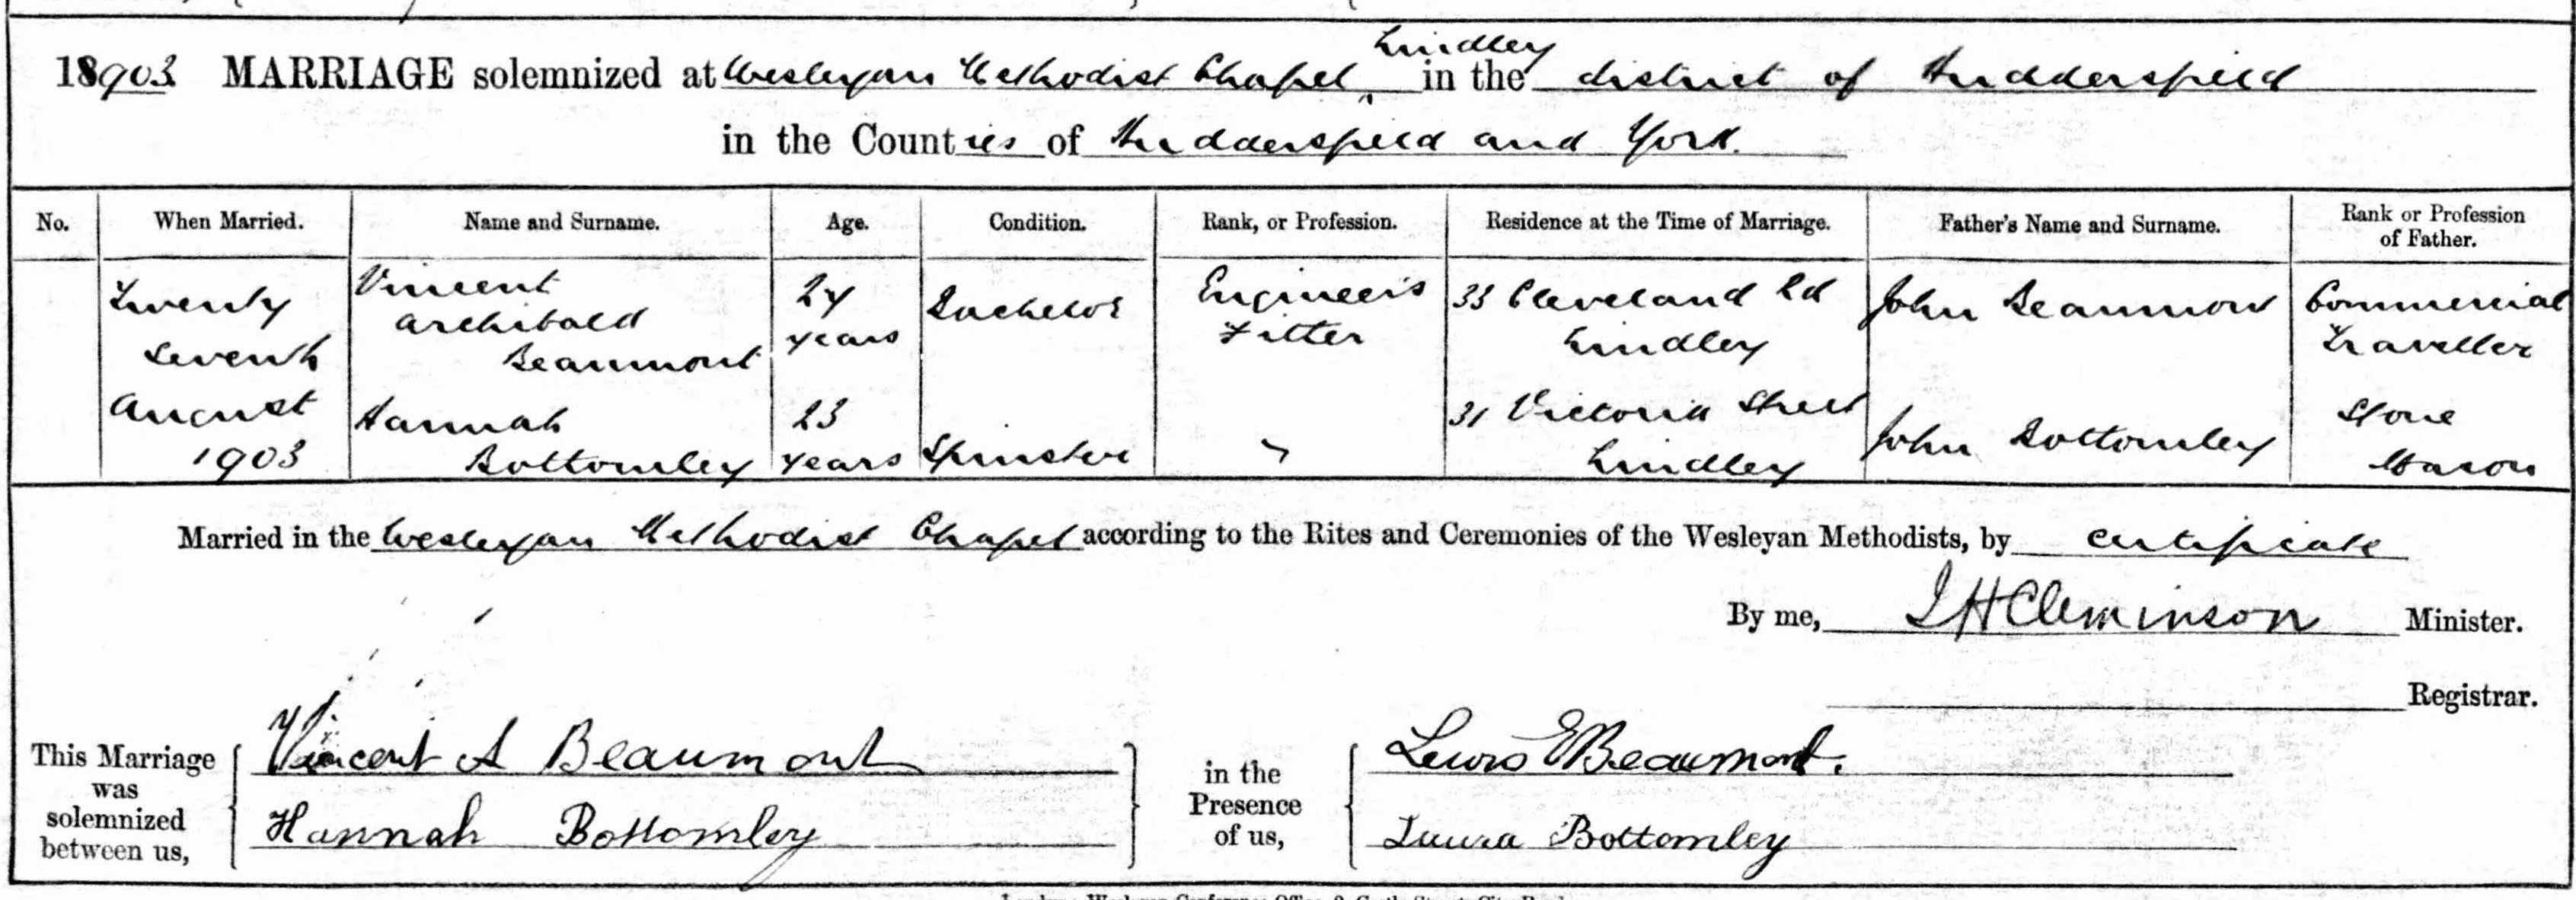 18903 MARRIAGE solemnized at Wesleyan Methodist Chapel, Lindley in the district of Huddersfield
in the Counties of Huddersfield and York.
No. When Married. Name and Surname. Age. Condition. Rank, or Profession. Residence at the Time of Marriage. Father's Name and Surname. Rank or Profession of Father.
Twenty Seventh August 1903 Vincent Archibald Beaumont 24 years Bachelor Engineer's Fitter 33 Cleveland Rd Lindley John Beaumont Commercial Traveller
Hannah Bottomley 23 years Spinster 31 Victoria Street Lindley John Bottomley Stone Mason
Married in the Wesleyan Methodist Chapel according to the Rites and Ceremonies of the Wesleyan Methodists, by certificate
By me, J H Cleminson Minister.
Registrar.
This Marriage was solemnized between us,
Vincent A Beaumont
Hannah Bottomley
in the Presence of us,
Lewis E Beaumont.
Laura Bottomley